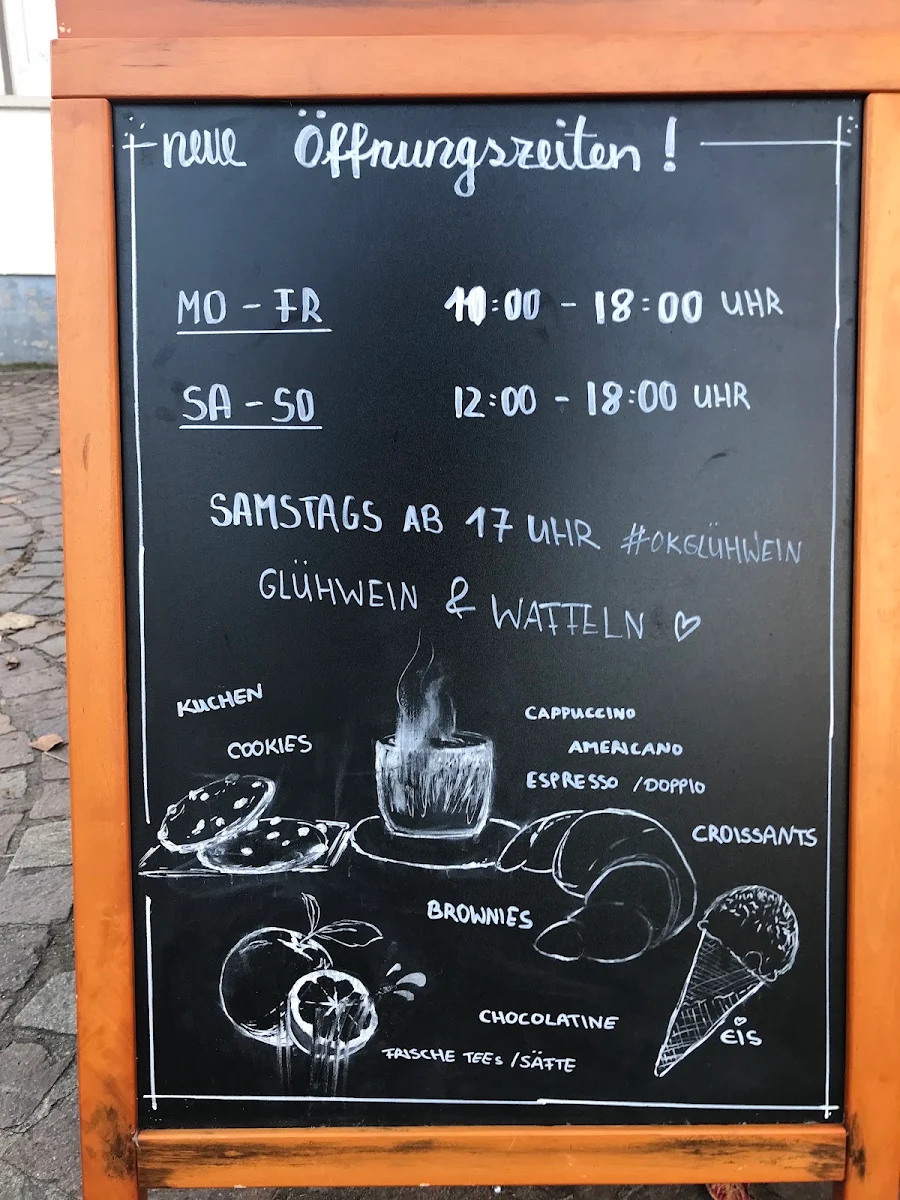 neue Öffnungszeiten !
MO - FR 10:00 - 18:00 UHR
SA - SO 12:00 - 18:00 UHR
SAMSTAGS AB 17 UHR #OKGLÜHWEIN
GLÜHWEIN & WAFFELN ♡
KUCHEN
COOKIES
CAPPUCCINO
AMERICANO
ESPRESSO /DOPPIO
CROISSANTS
BROWNIES
CHOCOLATINE
EIS
FRISCHE TEES /SÄFTE